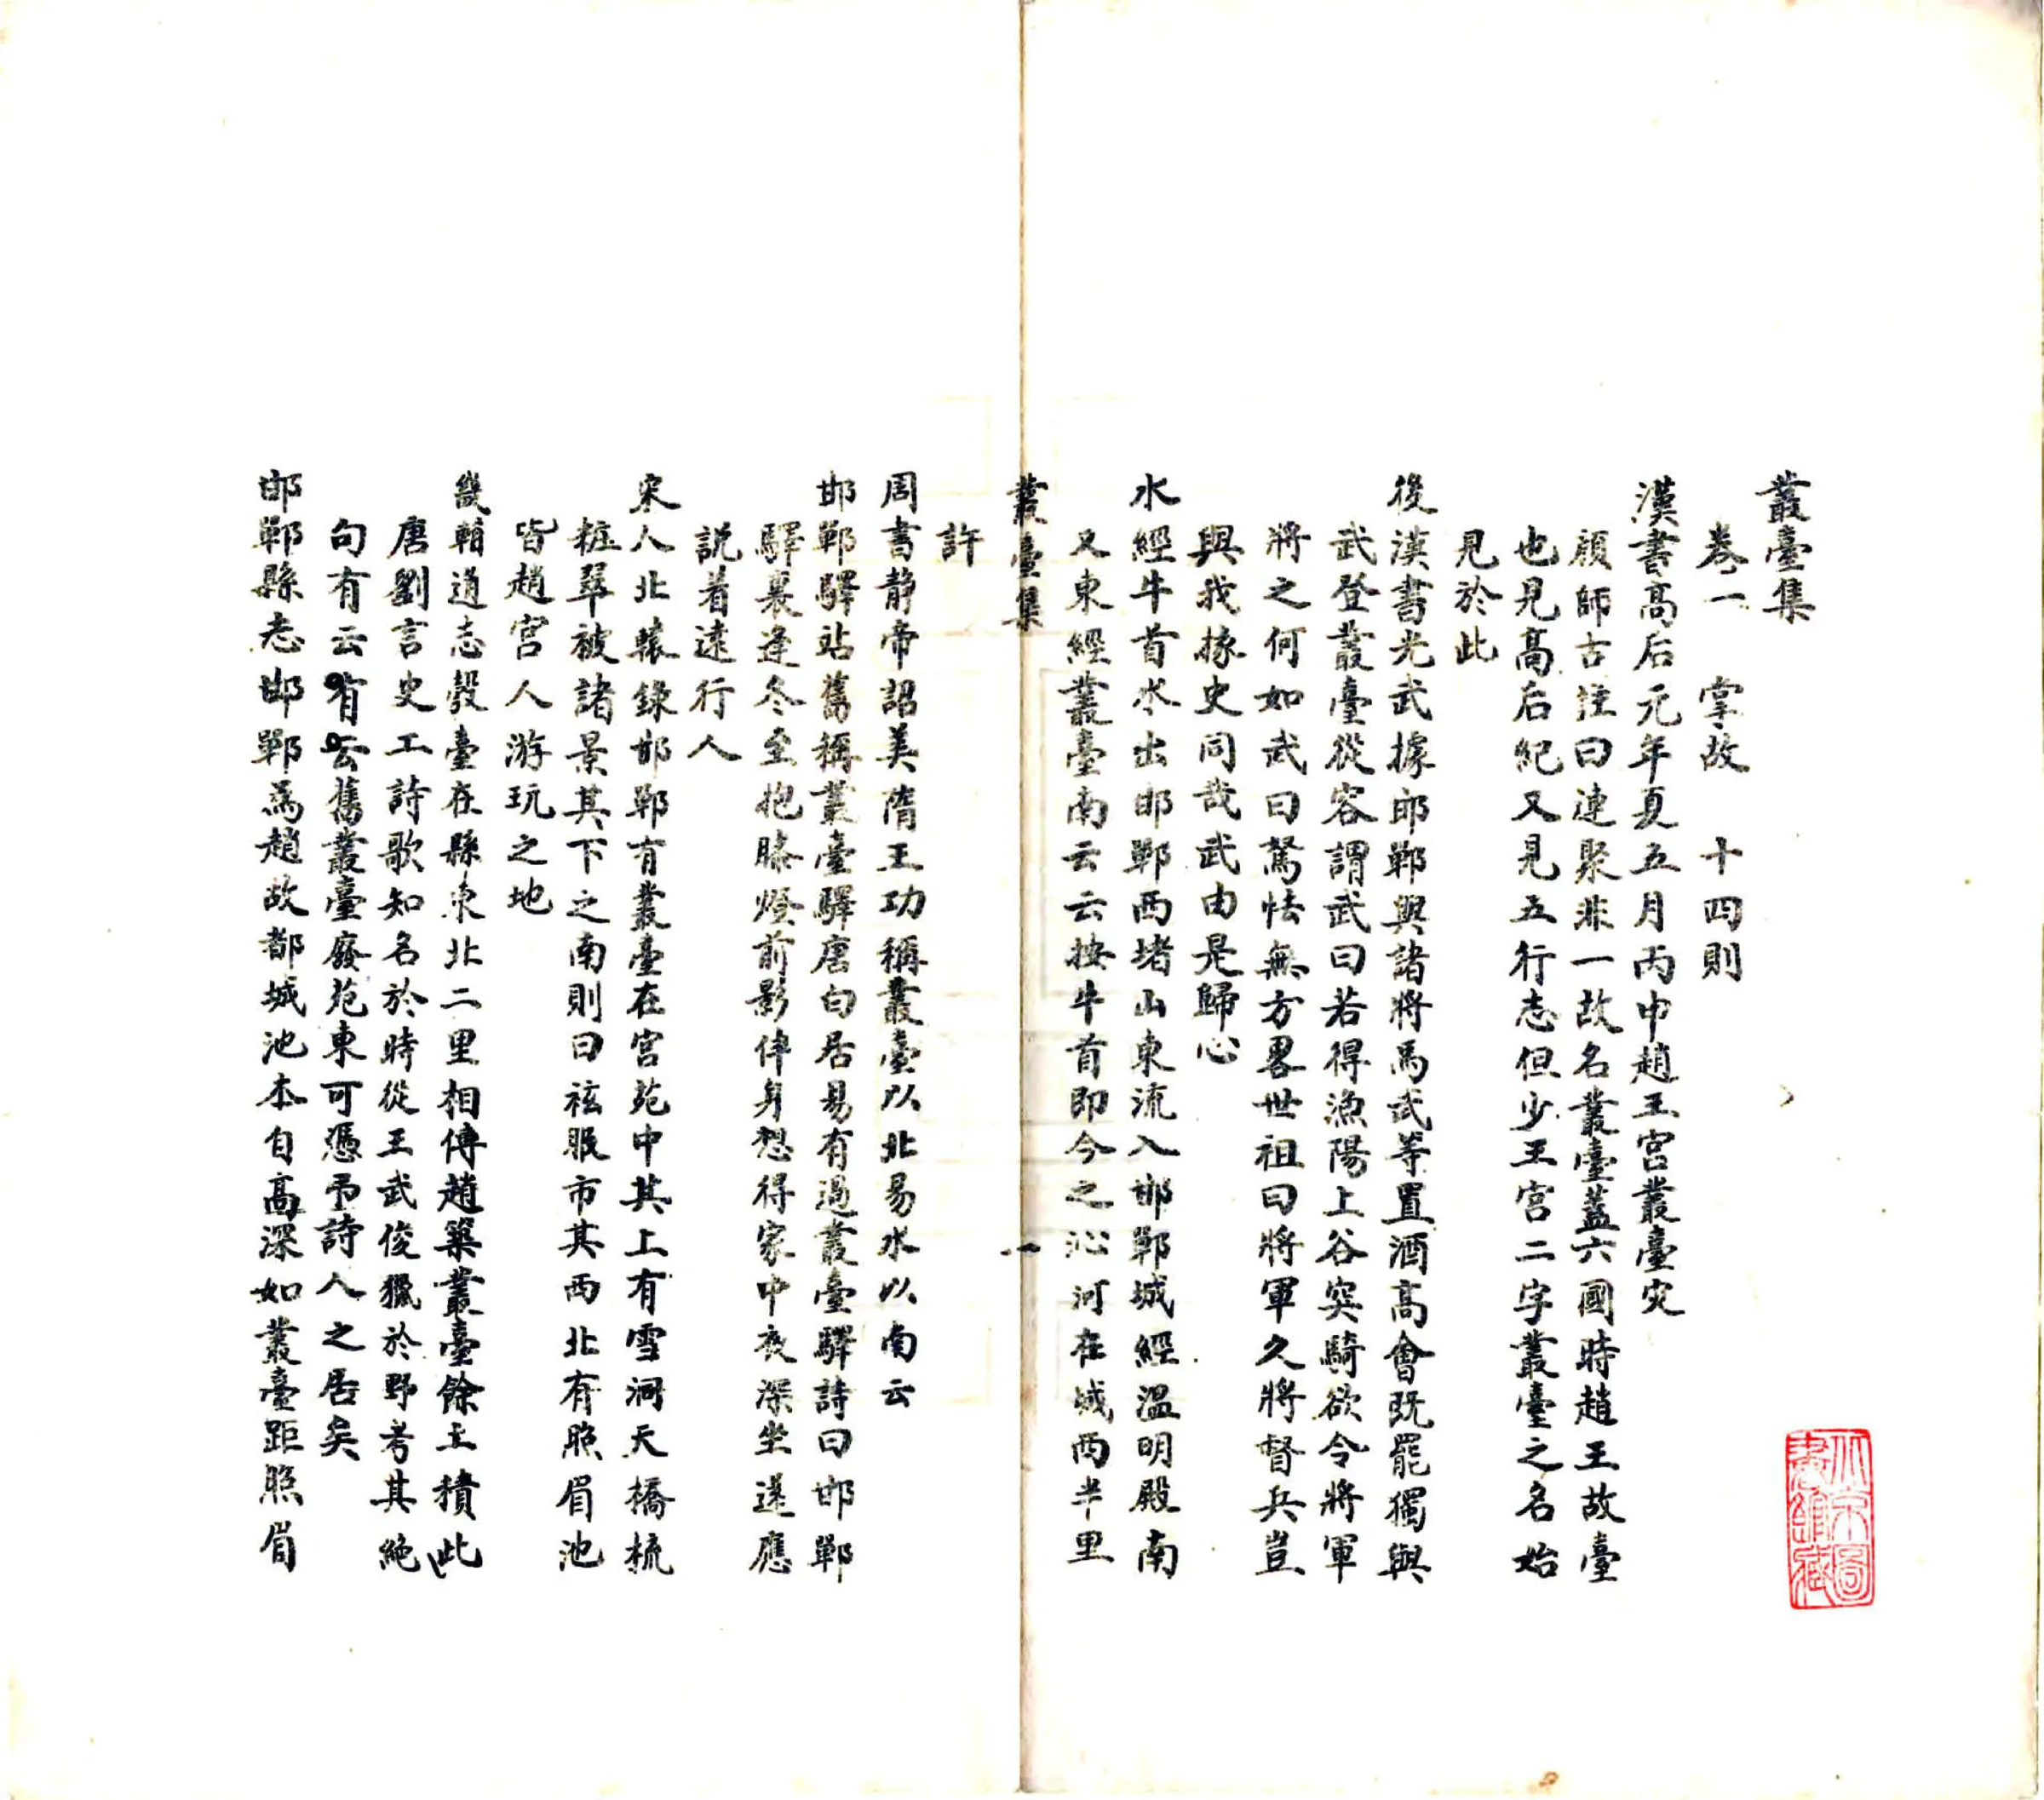 叢臺集
卷一 掌故 十四則
漢書高后元年夏五月丙申趙王宮叢臺灾
顏師古注曰連聚非一故名叢臺蓋六國時趙王故臺
也見高后紀又見五行志但少王宮二字叢臺之名始
見於此
後漢書光武據邯鄲與諸將馬武等置酒高會既罷獨與
武登叢臺從容謂武曰若得漁陽上谷突騎欲令將軍
將之何如武曰駑怯無方畧世祖曰將軍久將督兵豈
與我掾史同哉武由是歸心
水經牛首水出邯鄲西堵山東流入邯鄲城經溫明殿南
又東經叢臺南云云按牛首即今之沁河在城西半里
叢臺集 一
許
周書靜帝詔美隋王功稱叢臺以北易水以南云
邯鄲驛站舊稱叢臺驛唐白居易有過叢臺驛詩曰邯鄲
驛裏逢冬至抱膝燈前影伴身想得家中夜深坐遂應
説着遠行人
宋人北轅錄邯鄲有叢臺在宮苑中其上有雪洞天橋梳
粧翠被諸景其下之南則曰袨服市其西北有照眉池
皆趙宮人游玩之地
畿輔道志彀臺在縣東北二里相傳趙築叢臺餘土積此
唐劉言史工詩歌知名於時從王武俊獵於野考其絶
句有云有云舊叢臺廢苑東可憑弔詩人之居矣
邯鄲縣志邯鄲爲趙故都城池本自高深如叢臺距照眉